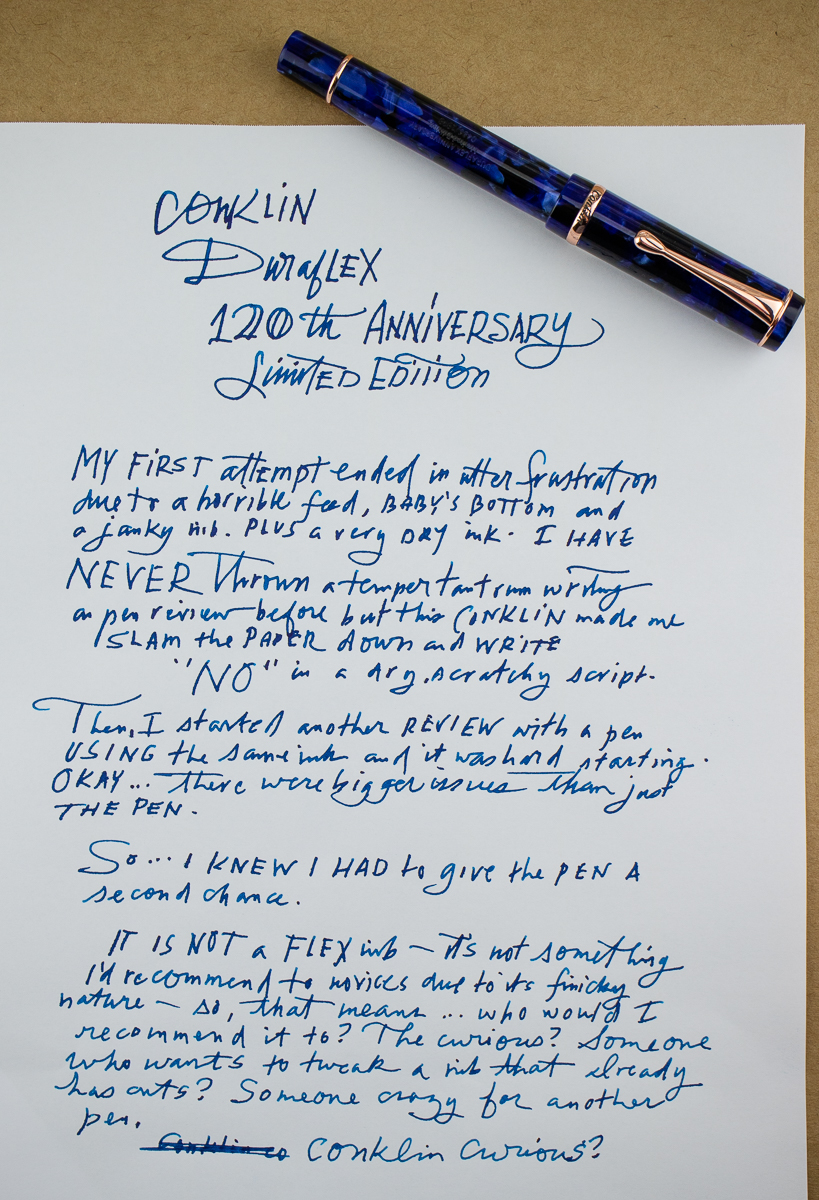 Conklin
CONKLIN
DuraFLEX
120th ANNIVERSARY
Limited Edition
MY FIRST attempt ended in utter frustration
due to a horrible feed, BABY'S BOTTOM and
a janky nib. PLUS a very DRY ink. I HAVE
NEVER Thrown a temper tantrum writing
a pen review before but this CONKLIN made me
SLAM the PAPER down and WRITE
"NO" in a dry, scratchy script.
Then, I started another REVIEW with a pen
USING the same ink and it was hard starting.
OKAY... there were bigger issues than just
THE PEN.
So... I KNEW I HAD to give the PEN A
second chance.
IT IS NOT a FLEX nib – it's not something
I'd recommend to novices due to its finicky
nature – so, that means ... who would I
recommend it to? The curious? Someone
who wants to tweak a nib that already
has cuts? Someone crazy for another
pen.
Conklin co Conklin curious?